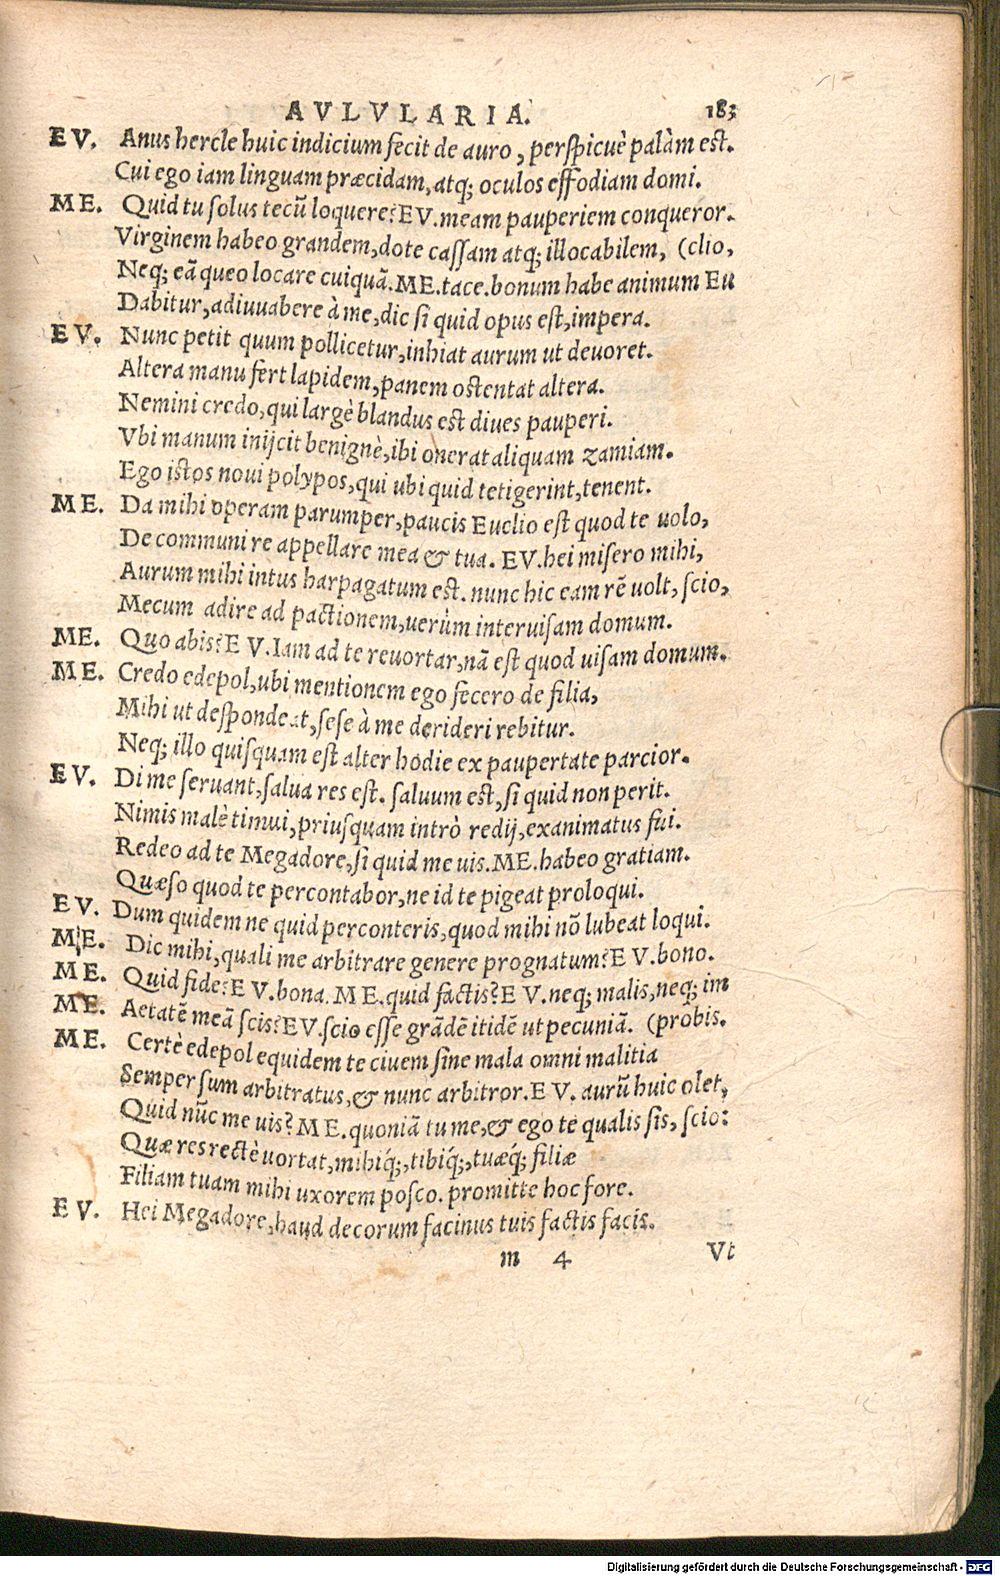 AVLVLARIA. 183
EV. Anus hercle huic indicium fecit de auro, perspicuè palàm est.
Cui ego iam linguam præcidam, atq; oculos effodiam domi.
ME. Quid tu solus tecũ loquere? EV. meam pauperiem conqueror.
Virginem habeo grandem, dote cassam atq; illocabilem, (clio,
Neq; eã queo locare cuiquã. ME. tace. bonum habe animum Eu
Dabitur, adiuuabere à me, dic si quid opus est, impera.
EV. Nunc petit quum pollicetur, inhiat aurum ut deuoret.
Altera manu fert lapidem, panem ostentat altera.
Nemini credo, qui largè blandus est diues pauperi.
Vbi manum inijcit benignè, ibi onerat aliquam zamiam.
Ego istos noui polypos, qui ubi quid tetigerint, tenent.
ME. Da mihi operam parumper, paucis Euclio est quod te uolo,
De communi re appellare mea & tua. EV. hei misero mihi,
Aurum mihi intus harpagatum est. nunc hic eam rẽ uolt, scio,
Mecum adire ad pactionem, uerùm interuisam domum.
ME. Quo abis? EV. Iam ad te reuortar, nã est quod uisam domum.
ME. Credo edepol, ubi mentionem ego fecero de filia,
Mihi ut despondeat, sese à me derideri rebitur.
Neq; illo quisquam est alter hodie ex paupertate parcior.
EV. Di me seruant, salua res est. saluum est, si quid non perit.
Nimis malè timui, priusquam intrò redij, exanimatus fui.
Redeo ad te Megadore, si quid me uis. ME. habeo gratiam.
Quæso quod te percontabor, ne id te pigeat proloqui.
EV. Dum quidem ne quid perconteris, quod mihi nõ lubeat loqui.
ME. Dic mihi, quali me arbitrare genere prognatum? EV. bono.
ME. Quid fide? EV. bona. ME. quid factis? EV. neq; malis, neq; im
ME. Aetatẽ meã scis? EV. scio esse grãdẽ itidẽ ut pecuniã. (probis.
ME. Certè edepol equidem te ciuem sine mala omni malitia
Semper sum arbitratus, & nunc arbitror. EV. aurũ huic olet,
Quid nũc me uis? ME. quoniã tu me, & ego te qualis sis, scio:
Quæ res rectè uortat, mihiq́;, tibiq́;, tuæq́; filiæ
Filiam tuam mihi uxorem posco. promitte hoc fore.
EV. Hei Megadore, haud decorum facinus tuis factis facis.
m 4 Vt
Digitalisierung gefördert durch die Deutsche Forschungsgemeinschaft - DFG